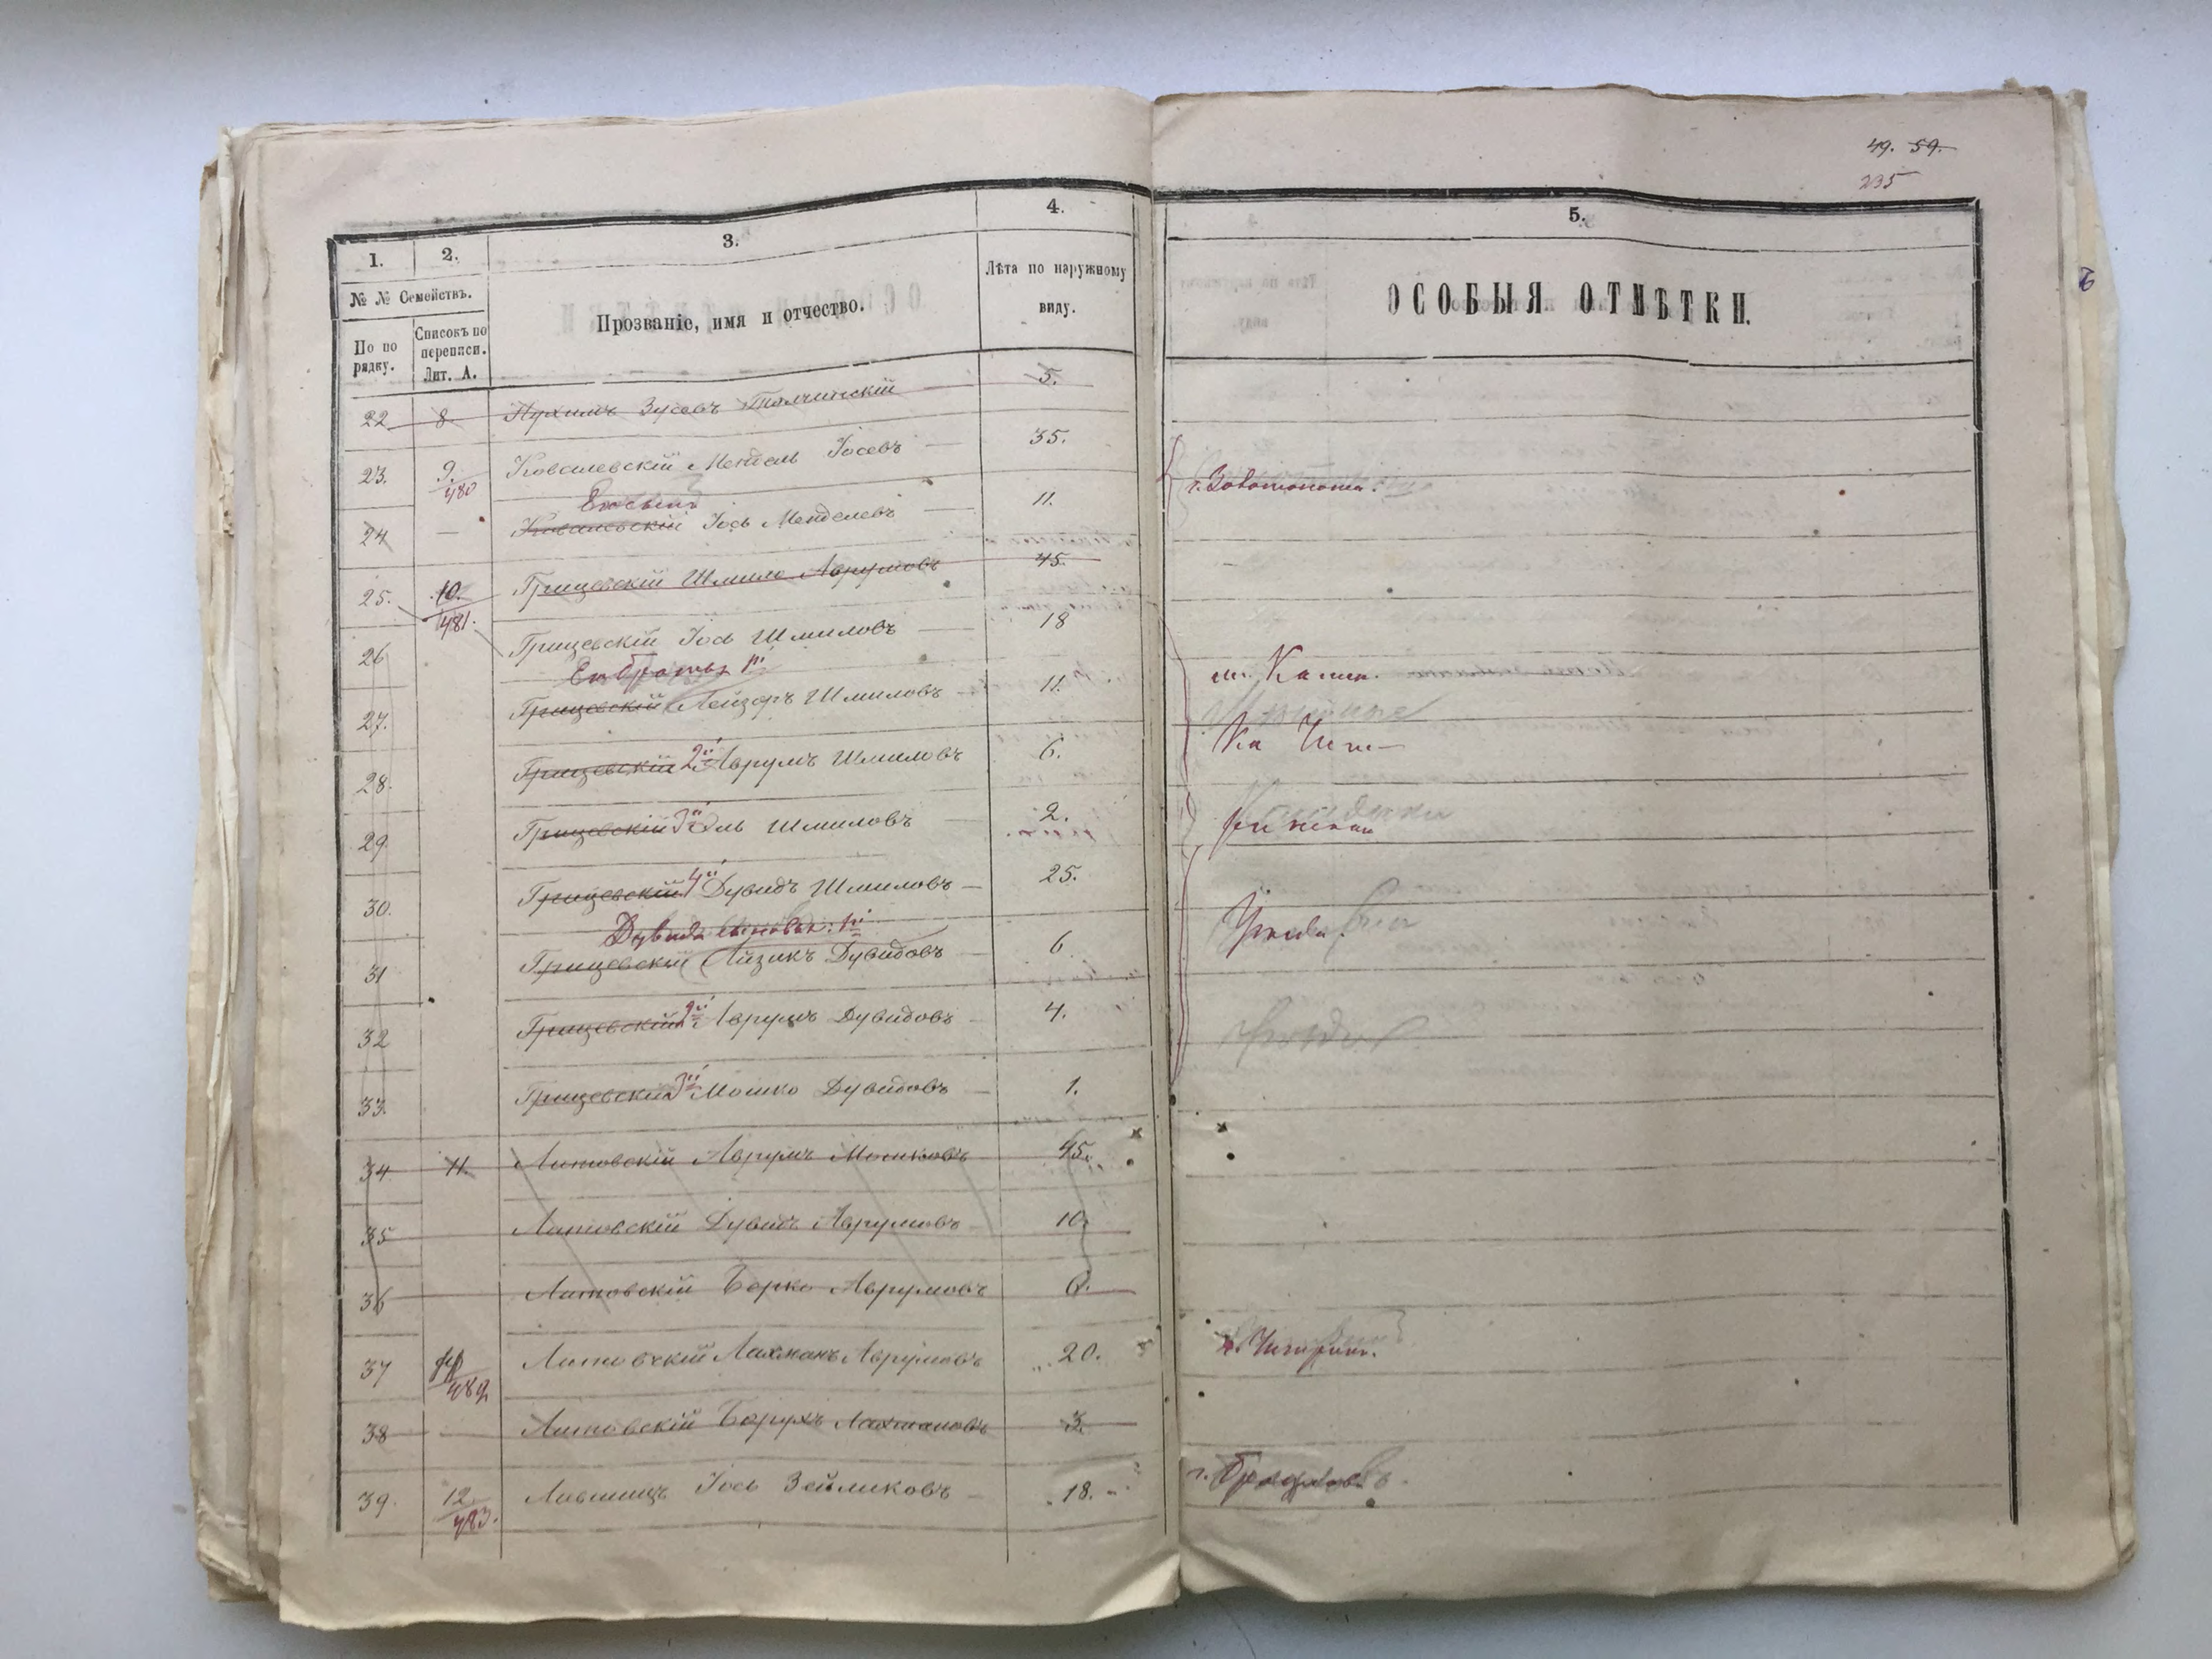 49. 59.
235
1.
2.
3.
4.
5.
№ № Семействъ.
По по рядку.
Списокъ по переписи. Лит. А.
Прозваніе, имя и отчество.
Лѣта по наружному виду.
ОСОБЫЯ ОТМѢТКИ.
22 8 Нухимъ Зусевъ Толчинскій 5.
23. 9. 480 Ковалевскій Мендель Іосевъ 35. г. Золотоноша.
Его сынъ
24 — Ковалевскій Іось Менделевъ 11.
25. 10. 481. Грицевскій Шмило Аврумовъ 45.
26 Грицевскій Іось Шмиловъ 18 м. Камен.
Его братья 1й
27. Грицевскій Лейзоръ Шмиловъ 11.
28. Грицевскій 2й Аврумъ Шмиловъ 6.
29. Грицевскій 3й Эль Шмиловъ 2.
30. Грицевскій 4й Дувидъ Шмиловъ 25.
Дувида сыновья: 1й
31 Грицевскій Айзикъ Дувидовъ 6
32 Грицевскій 2й Аврумъ Дувидовъ 4.
33. Грицевскій 3й Мошко Дувидовъ 1.
34 11. Литовскій Аврумъ Мошковъ 45.
35 Литовскій Дувидъ Аврумовъ 10.
36 Литовскій Берко Аврумовъ 6.
37 482 Литовскій Лахманъ Аврумовъ 20. г. Чигирин.
38 Литовскій Борухъ Лахмановъ 3.
39. 12. 483. Лившицъ Іось Зейликовъ 18.